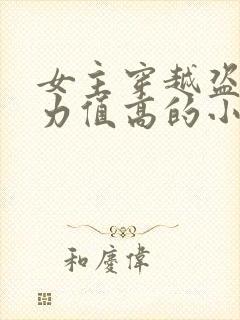 女主穿越盗
力值高的小
和慶偉